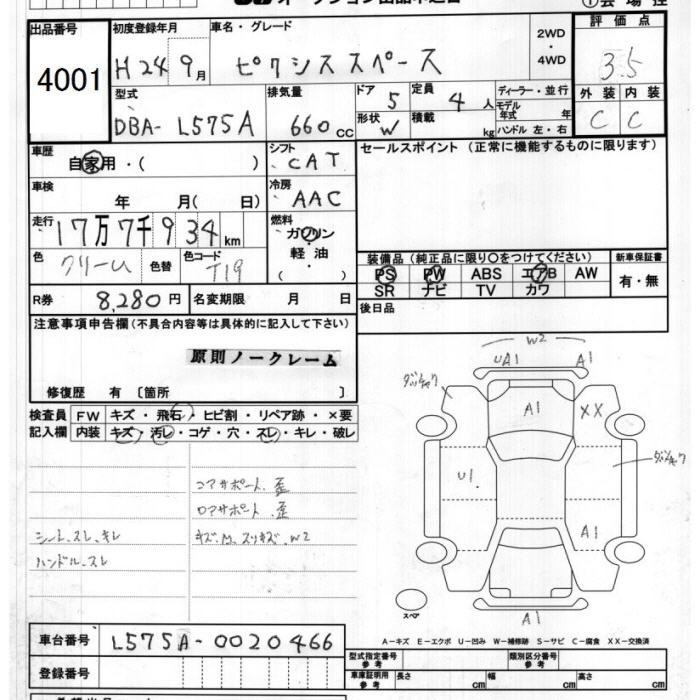 オークション出品申込書
①会場控
出品番号
4001
初度登録年月
H 24 9月
車名・グレード
ピクシススペース
2WD
・
4WD
評価点
3.5
外装 内装
C C
型式
DBA- L575A
排気量
660 CC
ドア 5
形状 W
定員 4 人
積載 kg
ディーラー・並行
モデル年式 年
ハンドル 左・右
車歴
自家用・( )
シフト
CAT
セールスポイント (正常に機能するものに限ります)
車検
年 月( 日)
冷房
AAC
走行
17万7千934km
燃料
ガソリン
軽油
・( )
色
クリーム
色替
色コード
T19
装備品 (純正品に限り○をつけてください)
PS PW ABS エアB AW
SR ナビ TV カワ
新車保証書
有・無
R券 8,280円
名変期限 月 日
後日品
注意事項申告欄 (不具合内容等は具体的に記入して下さい)
原則ノークレーム
修復歴 有 [箇所 ]
検査員
記入欄
FW キズ・飛石・ヒビ割・リペア跡・×要
内装 キズ・汚レ・コゲ・穴・スレ・キレ・破レ
シート、スレ、キレ
ハンドル、スレ
コアサポート、歪
ロアサポート、歪
キズ、M、スリキズ、W2
W2
UA1 A1
A1
XX
U1
A1
A1
スペア
A-キズ E-エクボ U-凹み W-補修跡 S-サビ C-腐食 XX-交換済
車台番号 L575A-0020466
登録番号
型式指定番号
参考
類別区分番号
参考
車庫証明用
参考
長さ cm 幅 cm 高さ cm